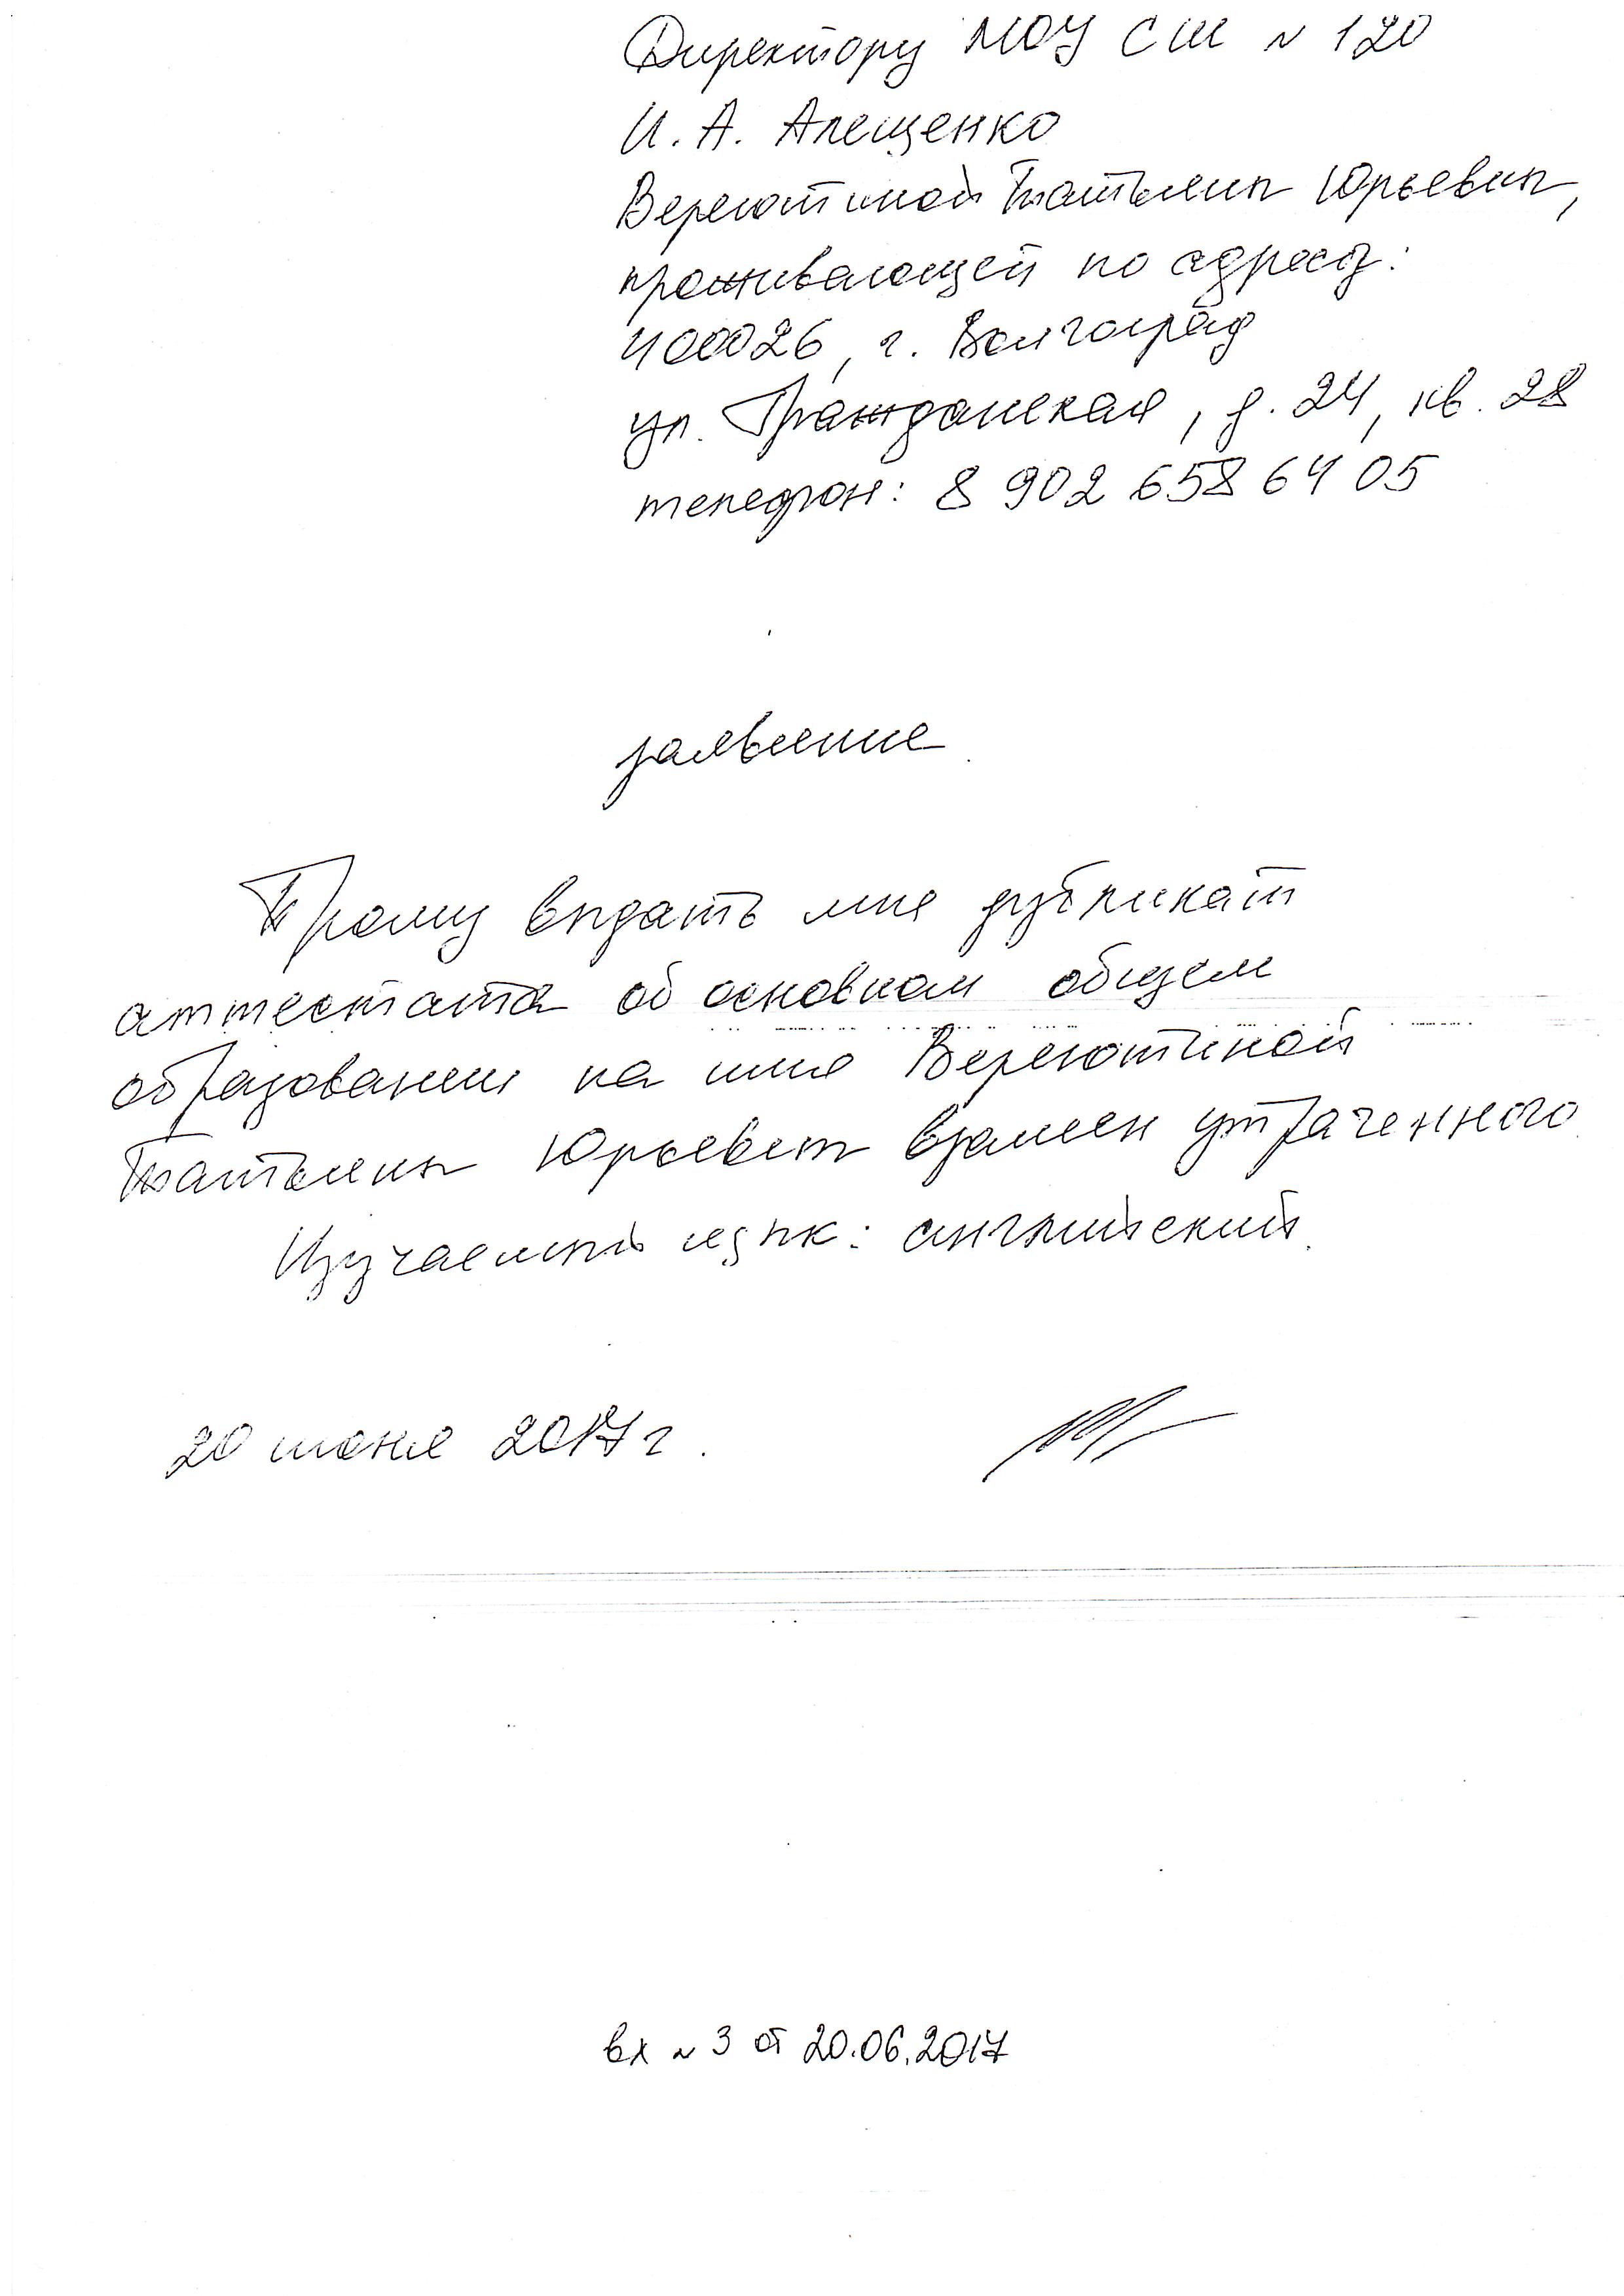 Директору МОУ СШ № 120
И. А. Алещенко
Верютиной Татьяны Юрьевны,
проживающей по адресу:
400026, г. Волгоград
ул. Гражданская, д. 24, кв. 28
телефон: 8 902 658 64 05
заявление.
Прошу выдать мне дубликат
аттестата об основном общем
образовании на имя Верютиной
Татьяны Юрьевны взамен утраченного.
Изучаемый язык: английский.
20 июня 2017 г.
вх № 3 от 20.06.2017